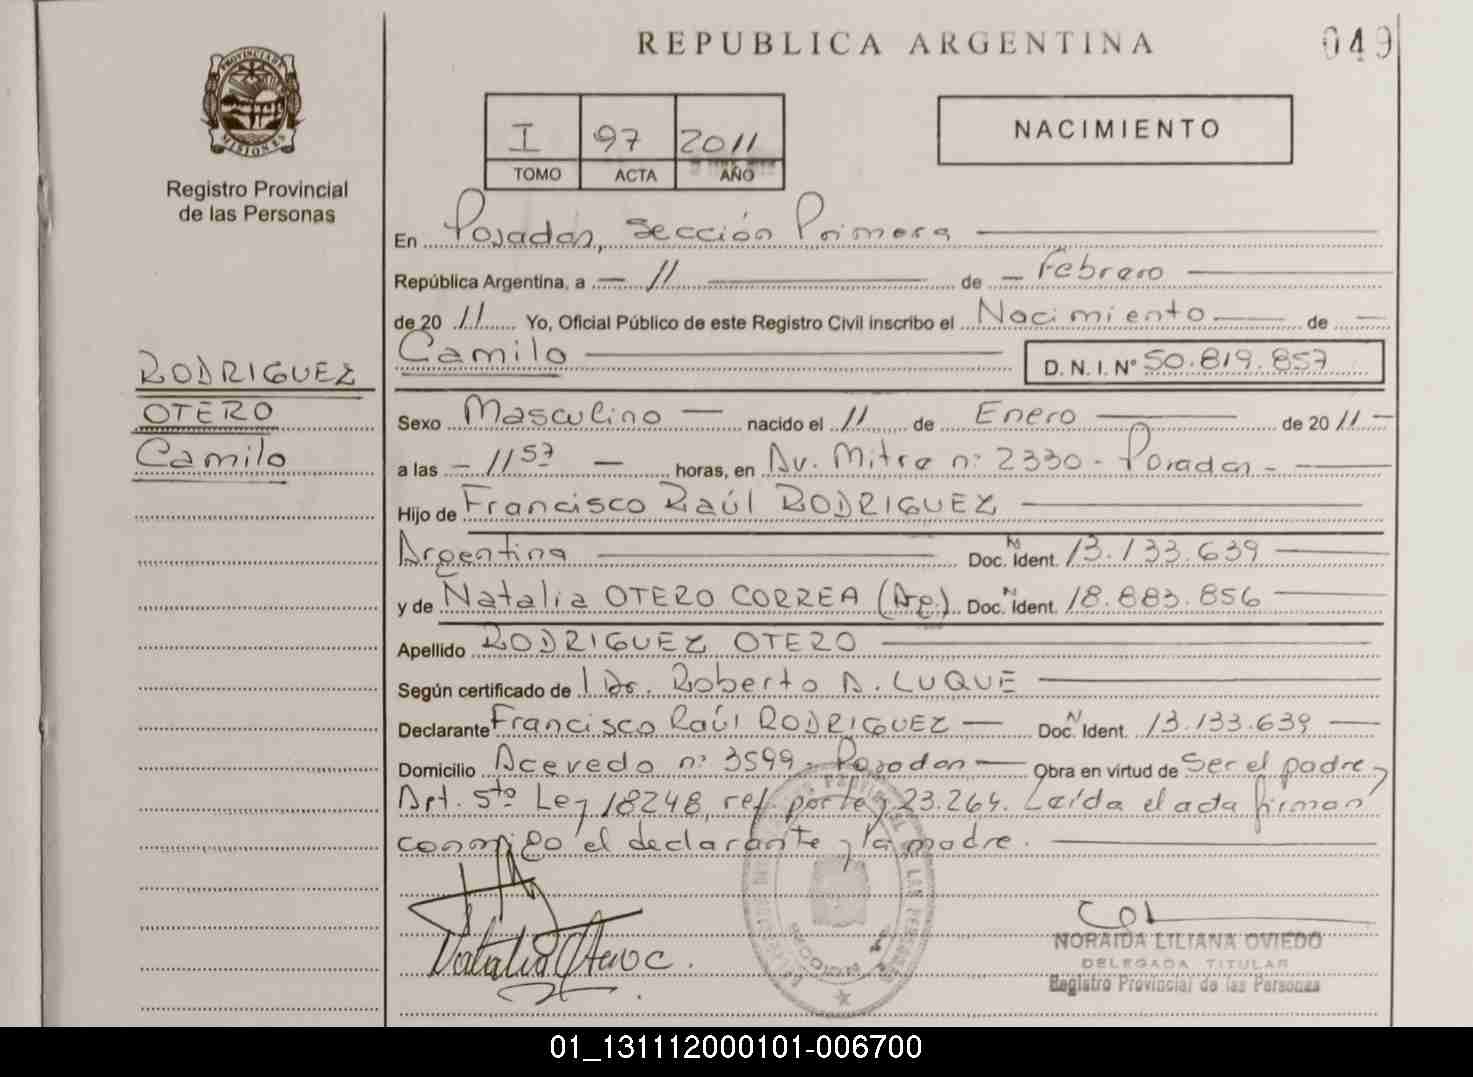 REPUBLICA ARGENTINA
049
PROVINCIA DE MISIONES
Registro Provincial
de las Personas
I 97 2011
TOMO ACTA AÑO
NACIMIENTO
En Posadas, Sección Primera
República Argentina, a 11 de Febrero
de 2011 Yo, Oficial Público de este Registro Civil inscribo el Nacimiento de
Camilo D. N. I. Nº 50.819.857
RODRIGUEZ
OTERO
Camilo
Sexo Masculino nacido el 11 de Enero de 2011
a las - 11 57 - horas, en Av. Mitre n: 2330 - Posadas -
Hijo de Francisco Raúl RODRIGUEZ
Argentina Doc. N Ident. 13.133.639
y de Natalia OTERO CORREA (Arg.) Doc. N Ident. 18.883.856
Apellido RODRIGUEZ OTERO
Según certificado de l Dr. Roberto A. LUQUE
Declarante Francisco Raúl RODRIGUEZ Doc. N Ident. 13.133.639
Domicilio Acevedo n: 3599 - Posadas Obra en virtud de Ser el padre,
Art. 5to Ley 18248, ref. por ley 23.264. Leída el acta firman
conmigo el declarante y la madre.
Natalia Otero C.
NORAIDA LILIANA OVIEDO
DELEGADA TITULAR
Registro Provincial de las Personas
01_131112000101-006700